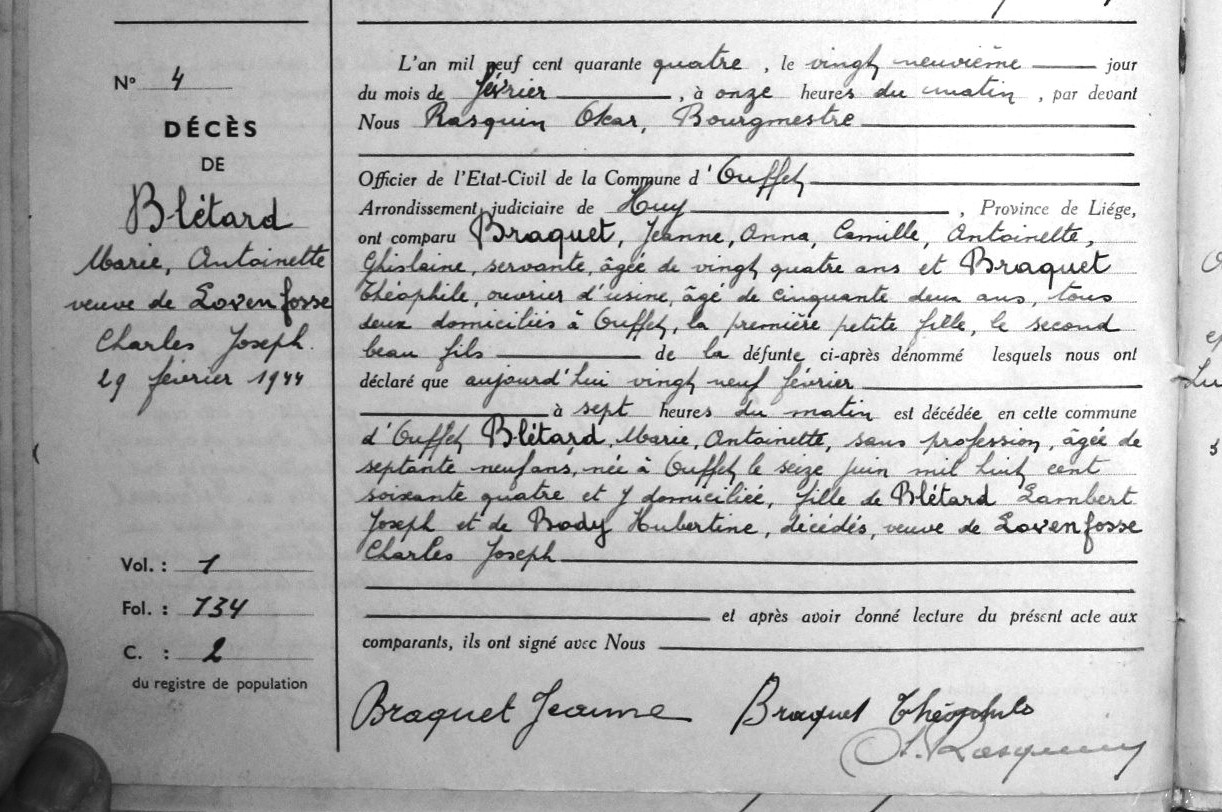 N° 4
DÉCÈS
DE
Blétard
Marie, Antoinette
veuve de Lovenfosse
Charles Joseph.
29 février 1944
Vol. : 1
Fol. : 134
C. : 2
du registre de population
L'an mil neuf cent quarante quatre, le vingt neuvième jour
du mois de février, à onze heures du matin, par devant
Nous Rasquin Oscar, Bourgmestre
Officier de l'Etat-Civil de la Commune d'Ouffet
Arrondissement judiciaire de Huy, Province de Liége,
ont comparu Braquet, Jeanne, Anna, Camille, Antoinette,
Ghislaine, servante, âgée de vingt quatre ans et Braquet
Théophile, ouvrier d'usine, âgé de cinquante deux ans, tous
deux domiciliés à Ouffet, la première petite fille, le second
beau fils de la défunte ci-après dénommé lesquels nous ont
déclaré que aujourd'hui vingt neuf février
à sept heures du matin est décédée en cette commune
d'Ouffet Blétard, Marie, Antoinette, sans profession, âgée de
septante neuf ans, née à Ouffet le seize juin mil huit cent
soixante quatre et y domiciliée, fille de Blétard Lambert
Joseph et de Body Hubertine, décédés, veuve de Lovenfosse
Charles Joseph
et après avoir donné lecture du présent acte aux
comparants, ils ont signé avec Nous
Braquet Jeanne Braquet Théophile
O. Rasquin